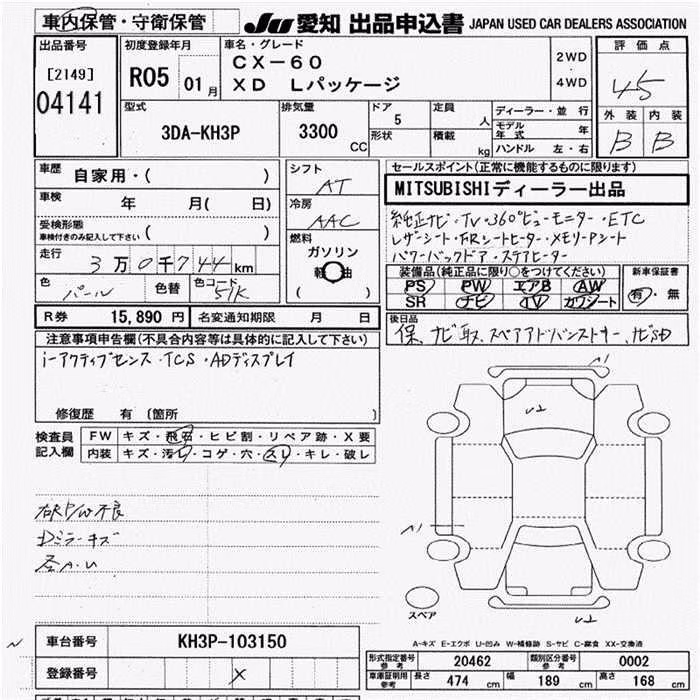 車内保管・守衛保管
JU 愛知 出品申込書 JAPAN USED CAR DEALERS ASSOCIATION
出品番号
[2149]
04141
初度登録年月
R05 01 月
車名・グレード
CX-60
XD Lパッケージ
2WD
・
4WD
評価点
4.5
外装 内装
B B
型式
3DA-KH3P
排気量
3300 CC
ドア
5
形状
定員
人
積載
kg
ディーラー・並行
モデル年式 年
ハンドル 左・右
車歴 自家用・( )
車検 年 月( 日)
受検形態
車検付きのみ記入して下さい ( )
走行 3万0千744km
色 パール 色替 色コード 51K
シフト
AT
冷房
AAC
燃料
ガソリン
軽油
( )
セールスポイント(正常に機能するものに限ります)
MITSUBISHIディーラー出品
純正ナビ・TV・360°ビューモニター・ETC
レザーシート・FRシートヒーター・メモリPシート
パワーバックドア・ステアヒーター
装備品(純正品に限り○をつけてください)
PS PW エアB AW
SR ナビ TV カワシート
新車保証書
有・無
R券 15,890 円 名変通知期限 月 日
後日品
保、ナビ取、スペアアドバンストキー、ナビSD
注意事項申告欄(不具合内容等は具体的に記入して下さい)
i-アクティブセンス・TCS・ADディスプレイ
修復歴 有 (箇所 )
検査員
記入欄
FW キズ・飛石・ヒビ割・リペア跡・X要
内装 キズ・汚レ・コゲ・穴・スレ・キレ・破レ
右RP/W不良
Dミラーキズ
A.U
A1
U2
A1
U2
スペア
A-キズ E-エクボ U-凹み W-補修跡 S-サビ C-腐食 XX-交換済
車台番号 KH3P-103150
登録番号 X
形式指定番号
参考
20462
類別区分番号
参考
0002
車庫証明用
参考
長さ 474 cm 幅 189 cm 高さ 168 cm